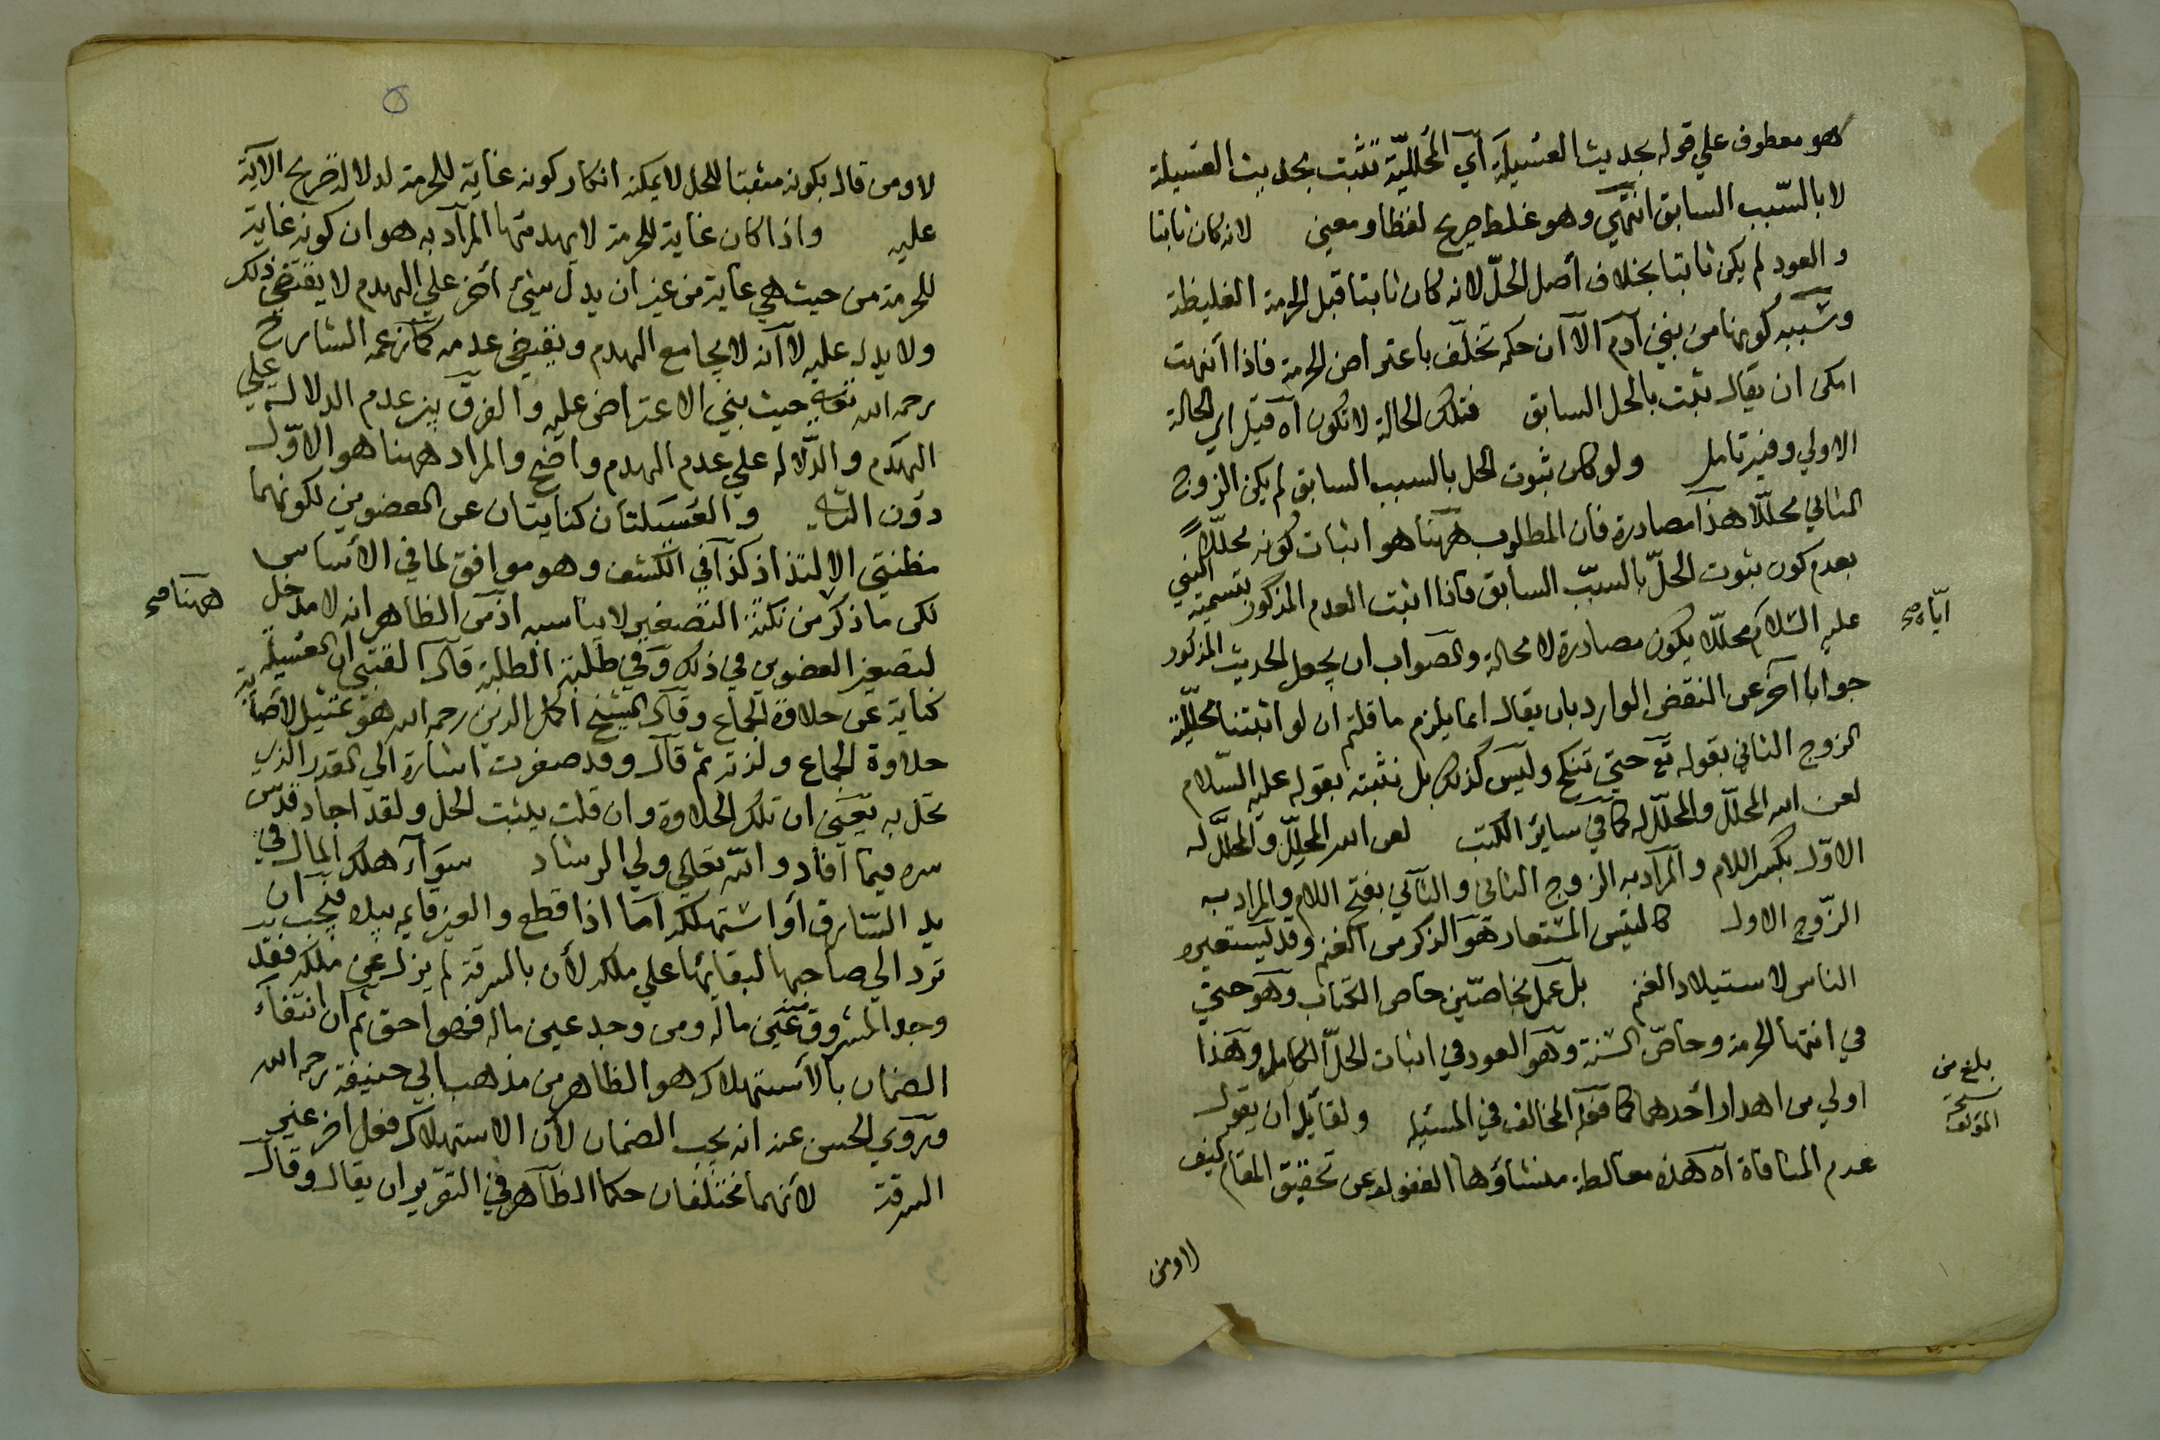 هو معطوف علي قوله بحديث العسيلة أي المحلليّة تثبت بحديث العسيلة
لا بالسّبب السابق انتهي وهو غلط صريح لفظا ومعني لانه كان ثابتا
والعود لم يكن ثابتا بخلاف أصل الحلّ لانه كان ثابتا قبل الحرمة الغليظة
وسببه كونها من بني آدم الا أن حكمه تخلّف باعتراض الحرمة فاذا انتهت
امكن ان يقال ثبت بالحل السابق فتلك الحالة لا تكون آه قيل اي الحالة
الاولي وفيه تامل ولو كان ثبوت الحل بالسبب السابق لم يكن الزوج
الثاني محللّا هذا مصادرة فان المطلوب ههنا هو اثبات كونه محللّا
بعدم كون ثبوت الحلّ بالسبّب السابق فاذا اثبت العدم المذكور بتسمية النبي
عليه السّلام محللّا يكون مصادرة لا محالة والصواب ان يجعل الحديث المذكور
ايّاه صح
جوابا آخر عن النقض الوارد بان يقال انما يلزم ما قلتم ان لو اثبتنا محللّية
الزوج الثاني بقوله تع حتي تنكح وليس كذلك بل نثبته بقوله عليه السّلام
لعن الله المحلّل والمحلّل له كما في سائر الكتب لعن الله المحلِّل والمحلَّل له
الاوّل بكسر اللام والمراد به الزوج الثاني والثاني بفتح اللام والمراد به
الزّوج الاول كالتيس المستعار هو الذكر من الغنم وقد يستعيره
الناس لاستيلاد الغنم بل عمل بخاصّين خاص الكتاب وهو حتي
في انتهاء الحرمة وخاصّ السّنة وهو العود في اثبات الحلّ الكامل وهذا
بلغ من نسخة المؤلف
اولي من اهدار أحدهما كما فعله المخالف في المسئلة ولقائل ان يقول
عدم المنافاة آه هذه مغالطة منشاؤها الغفول عن تحقيق المقام كيف
لا ومن
لا ومن قال بكونه مثبتا للحل لا يمكنه انكار كونه غاية للحرمة لدلالة صريح الآية
عليه واذا كان غاية للحرمة لا يهدمها المراد به هو ان كونه غاية
للحرمة من حيث هي غاية من غير ان يدل شئ آخر علي الهدم لا يقتضي ذلك
ولا يدل عليه لا أنه لا يجامع الهدم ويقتضي عدمه كما زعمه الشارح
رحمه الله حيث بني الاعتراض عليه والفرق بين عدم الدلالة علي
الهدم والدّلالة علي عدم الهدم واضح والمراد ههنا هو الاوّل
دون الثاني والعسيلتان كنايتان عن العضوين لكونهما
مظنتي الالتذاذ كذا في الكشف وهو موافق لما في الأساس
لكن ما ذكر من نكتة التصغير لا يناسبه اذ من الظاهر انه لا مدخل
ههنا صح
لتصغير العضوين في ذلك وفي طلبة الطلبة قال القتبي ان العسيلة
كناية عن حلاوة الجماع وقال الشيخ اكمل الدين رحمه الله هو تمثيل لاصابة
حلاوة الجماع ولذته ثم قال وقد صغرت اشارة الي القدر الذي
تحل به يعني ان تلك الحلاوة وان قلت يثبت الحل ولقد اجاد قدّس
سره فيما آفاد والله تعالي ولي الرشاد سواء هلك المال في
يد السّارق أو استهلكه امّا اذا قطع والعين قايمة بيده فيجب ان
ترد الي صاحبها لبقائها علي ملكه لأن بالسرقة لم يزل عن ملكه فقد
وجد المسروق منه عين ماله ومن وجد عين ماله فهو احق به ثم ان انتفاء
الضمان بالاستهلاك هو الظاهر من مذهب ابي حنيفة رحمه الله
وروي الحسن عنه انه يجب الضمان لأن الاستهلاك فعل اخر غير
السرقة لأنهما مختلفان حكما الظاهر في التقرير ان يقال وقال